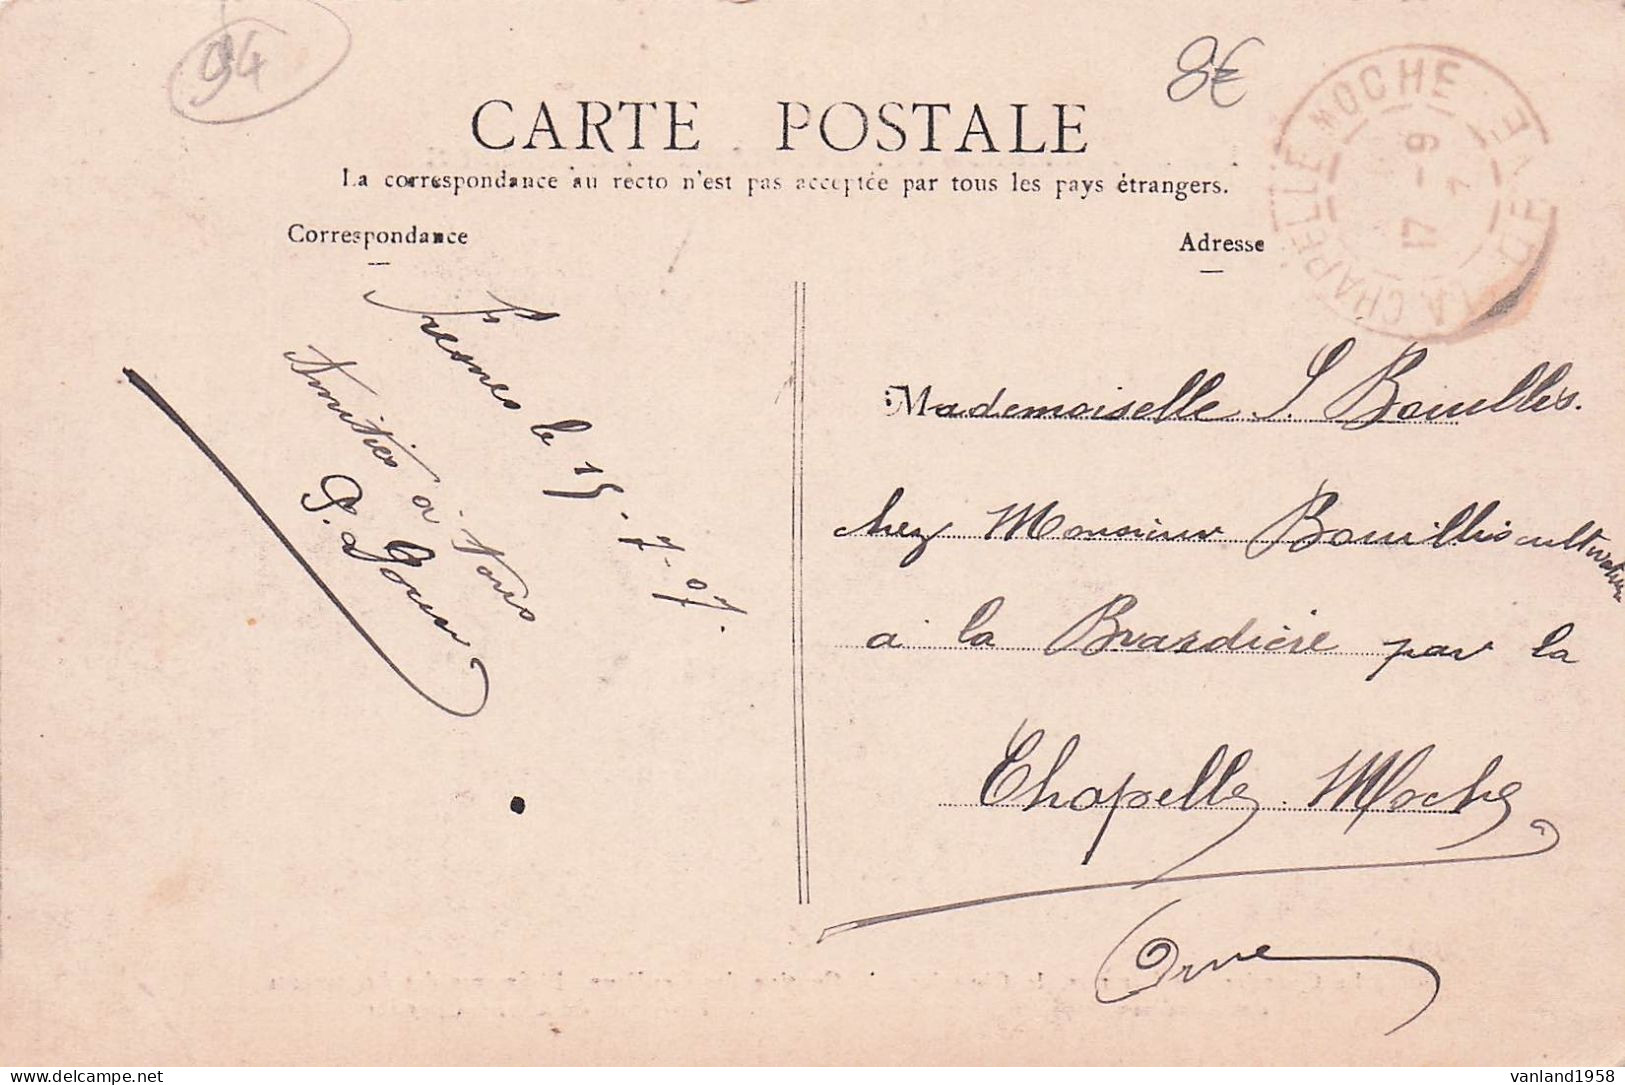 94
8€
CARTE POSTALE
La correspondance au recto n'est pas acceptée par tous les pays étrangers.
Correspondance
Adresse
LA CHAPELLE MOCHE
17 - 9
7
Fresnes le 15-7-07.
Amitiés à Vous
Mademoiselle S. Bouillis.
chez Monsieur Bouillis cultivateur
a la Brasdière par la
Chapelle Moche
Orne
vanland1958